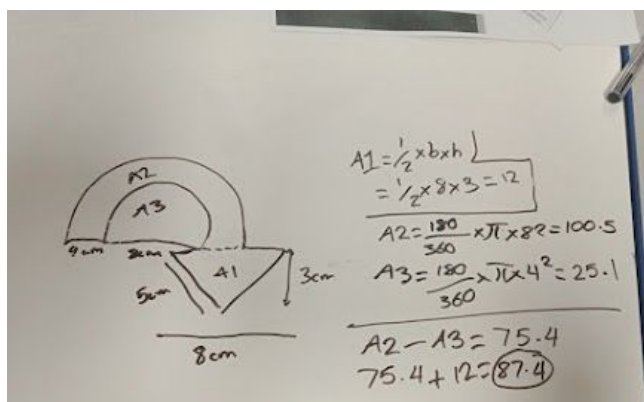 A2
A3
4cm 8cm
A1
5cm
3cm
8cm
A1 = 1/2 × b × h
= 1/2 × 8 × 3 = 12
A2 = 180/360 × π × 82 = 100.5
A3 = 180/360 × π × 4² = 25.1
A2 - A3 = 75.4
75.4 + 12 = 87.4